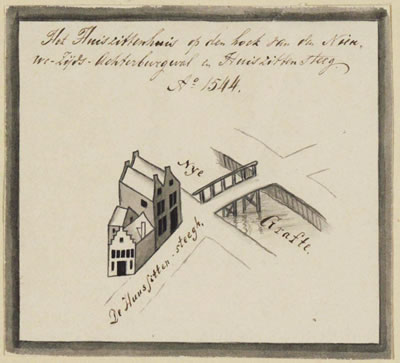 Het Huiszittenhuis op den hoek van den Nieu-
we-Zyds-Achterburgwal en Huiszitten steeg
Aº 1544.
Nye
Grafte.
De Huussitten-steegh.